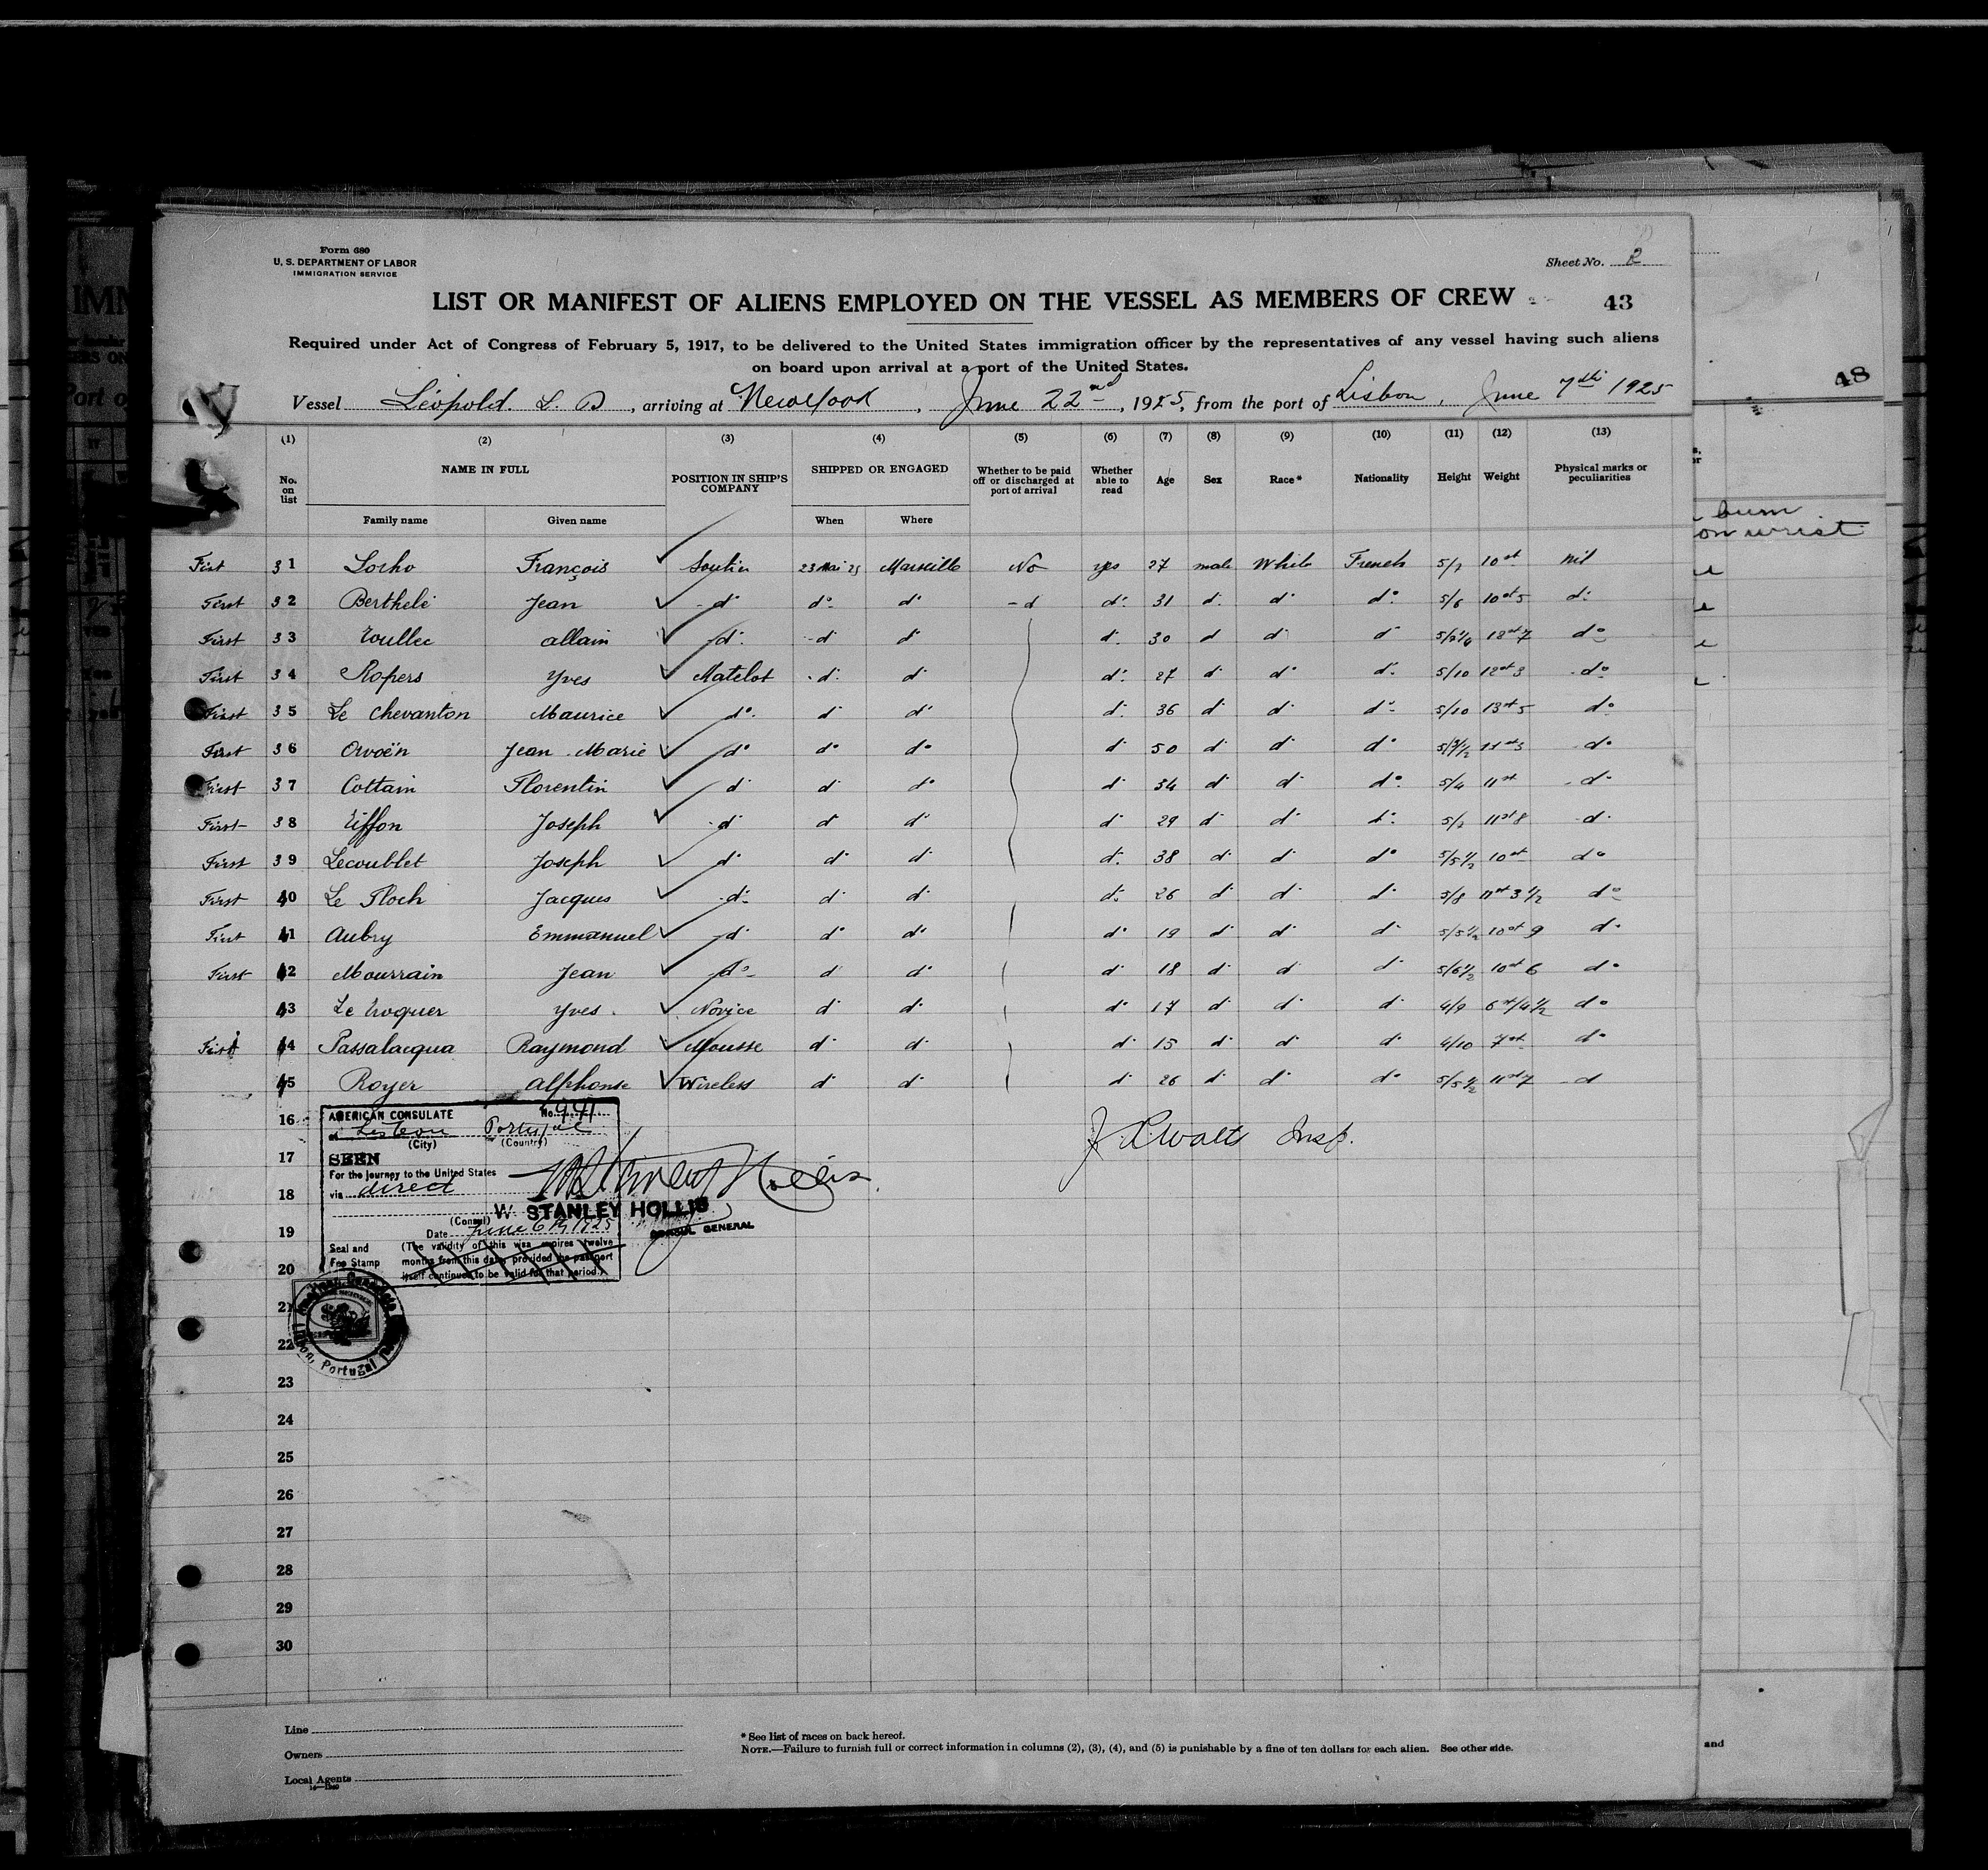 Form 680
U. S. DEPARTMENT OF LABOR
IMMIGRATION SERVICE
Sheet No. 2
LIST OR MANIFEST OF ALIENS EMPLOYED ON THE VESSEL AS MEMBERS OF CREW
43
Required under Act of Congress of February 5, 1917, to be delivered to the United States immigration officer by the representatives of any vessel having such aliens
on board upon arrival at a port of the United States.
48
Vessel Léopold. L. D, arriving at, June 22nd, 1925, from the port of Lisbon, June 7th 1925
(1) (2) (3) (4) (5) (6) (7) (8) (9) (10) (11) (12) (13)
No. on list NAME IN FULL POSITION IN SHIP'S COMPANY SHIPPED OR ENGAGED Whether to be paid off or discharged at port of arrival Whether able to read Age Sex Race* Nationality Height Weight Physical marks or peculiarities
Family name Given name When Where
burn
on wrist
First 31 Lorho François Soutier 23 Mai 25 Marseille No yes 27 male White French 5/7 10st nil
First 32 Berthelé Jean do do do do do 31 do do do 5/6 10st5 do
First 33 Toullec allain do do do do 30 do do do 12st7 do
First 34 Ropers Yves Matelot do do do 27 do do do 5/10 12st3 do
First 35 Le Chevanton Maurice do do do do 36 do do do 5/10 13st5 do
First 36 Orvoën Jean Marie do do do do 50 do do do 11st3 do
First 37 Cottain Florentin do do do do 34 do do do 5/4 11st do
First 38 Eiffon Joseph do do do do 29 do do do 11st8 do
First 39 Lecoublet Joseph do do do do 38 do do do 5/5½ 10st do
First 40 Le Floch Jacques do do do do 26 do do do 5/8 11st3½ do
First 41 Aubry Emmanuel do do do do 19 do do do 5/5½ 10st9 do
First 42 Mourrain Jean do do do do 18 do do do 5/6½ 10st6 do
43 Le Troquer Yves Novice do do do 17 do do do 4/9 6st/4½ do
First 44 Passalacqua Raymond Mousse do do do 15 do do do 4/10 7st do
45 Royer Alphonse Wireless do do do 26 do do do 5/5½ 11st7 do
16
17
18
19
20
21
22
23
24
25
26
27
28
29
30
AMERICAN CONSULATE No. 991
at Lisbon Portugal
(City) (Country)
SEEN
For the journey to the United States
via direct
W. STANLEY HOLLIS
CONSUL GENERAL
(Consul)
Date June 6th, 1925
Seal and Fee Stamp
(The validity of this visa expires twelve
months from this date, provided the passport
itself continues to be valid for that period.)
American Consulate
Lisbon, Portugal
Insp.
Line
Owners
Local Agents
* See list of races on back hereof.
NOTE.—Failure to furnish full or correct information in columns (2), (3), (4), and (5) is punishable by a fine of ten dollars for each alien. See other side.
and